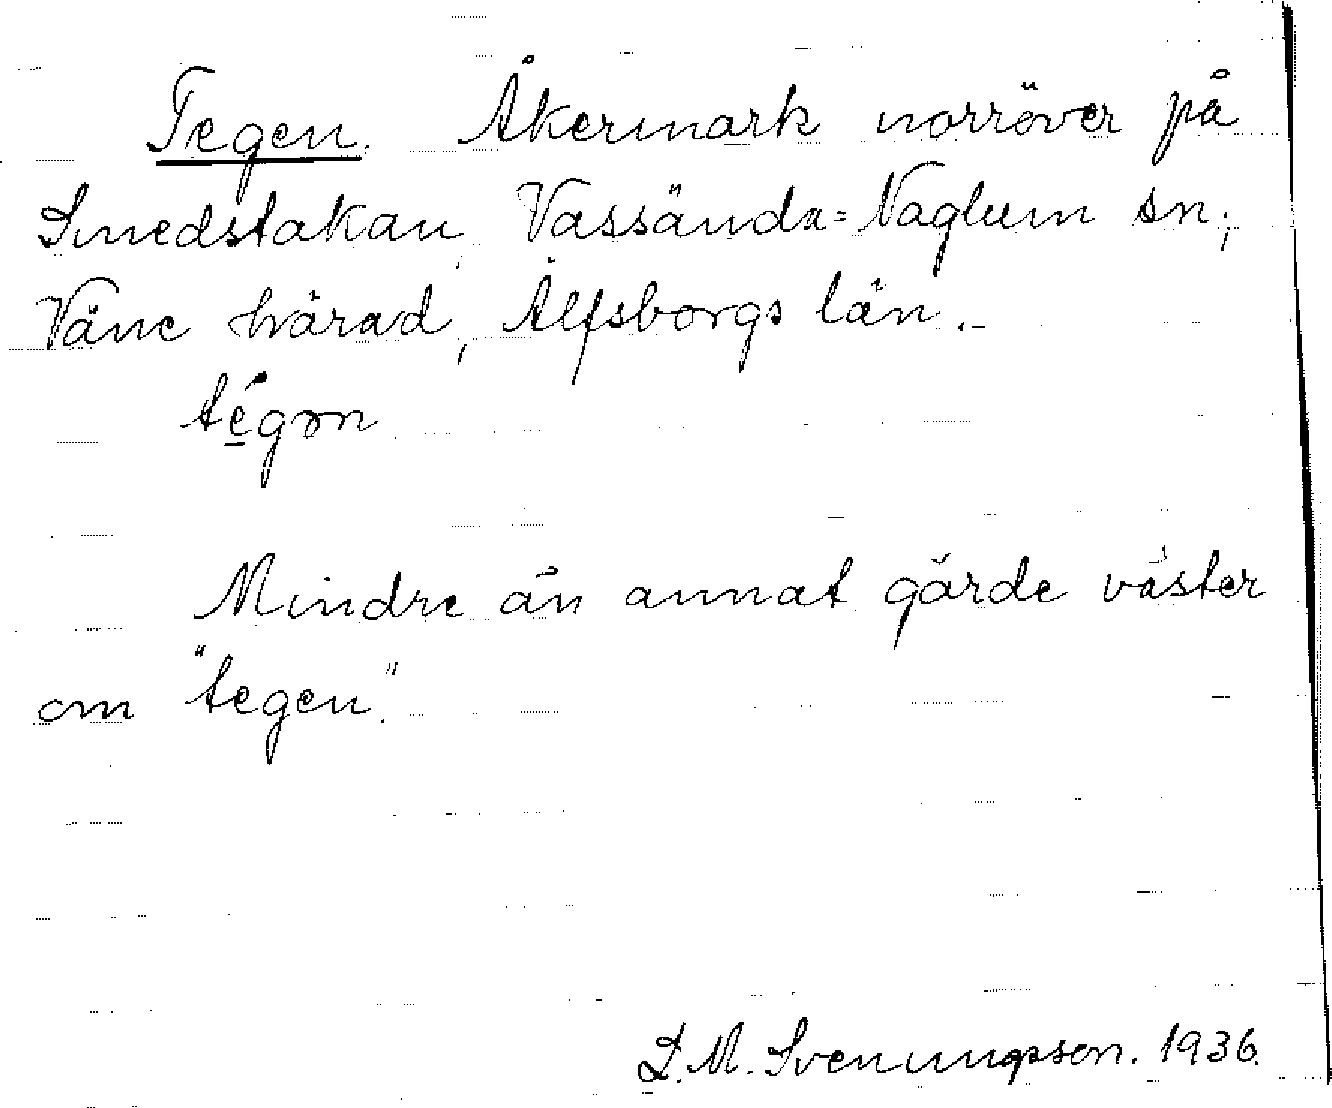 Tegen. Åkermark norröver på
Smedstakan, Vassända=Naglum sn,
Väne härad, Älfsborgs län.
te̱´gən
Mindre än annat gärde väster
om "tegen".
D. M. Svenungsson. 1936.